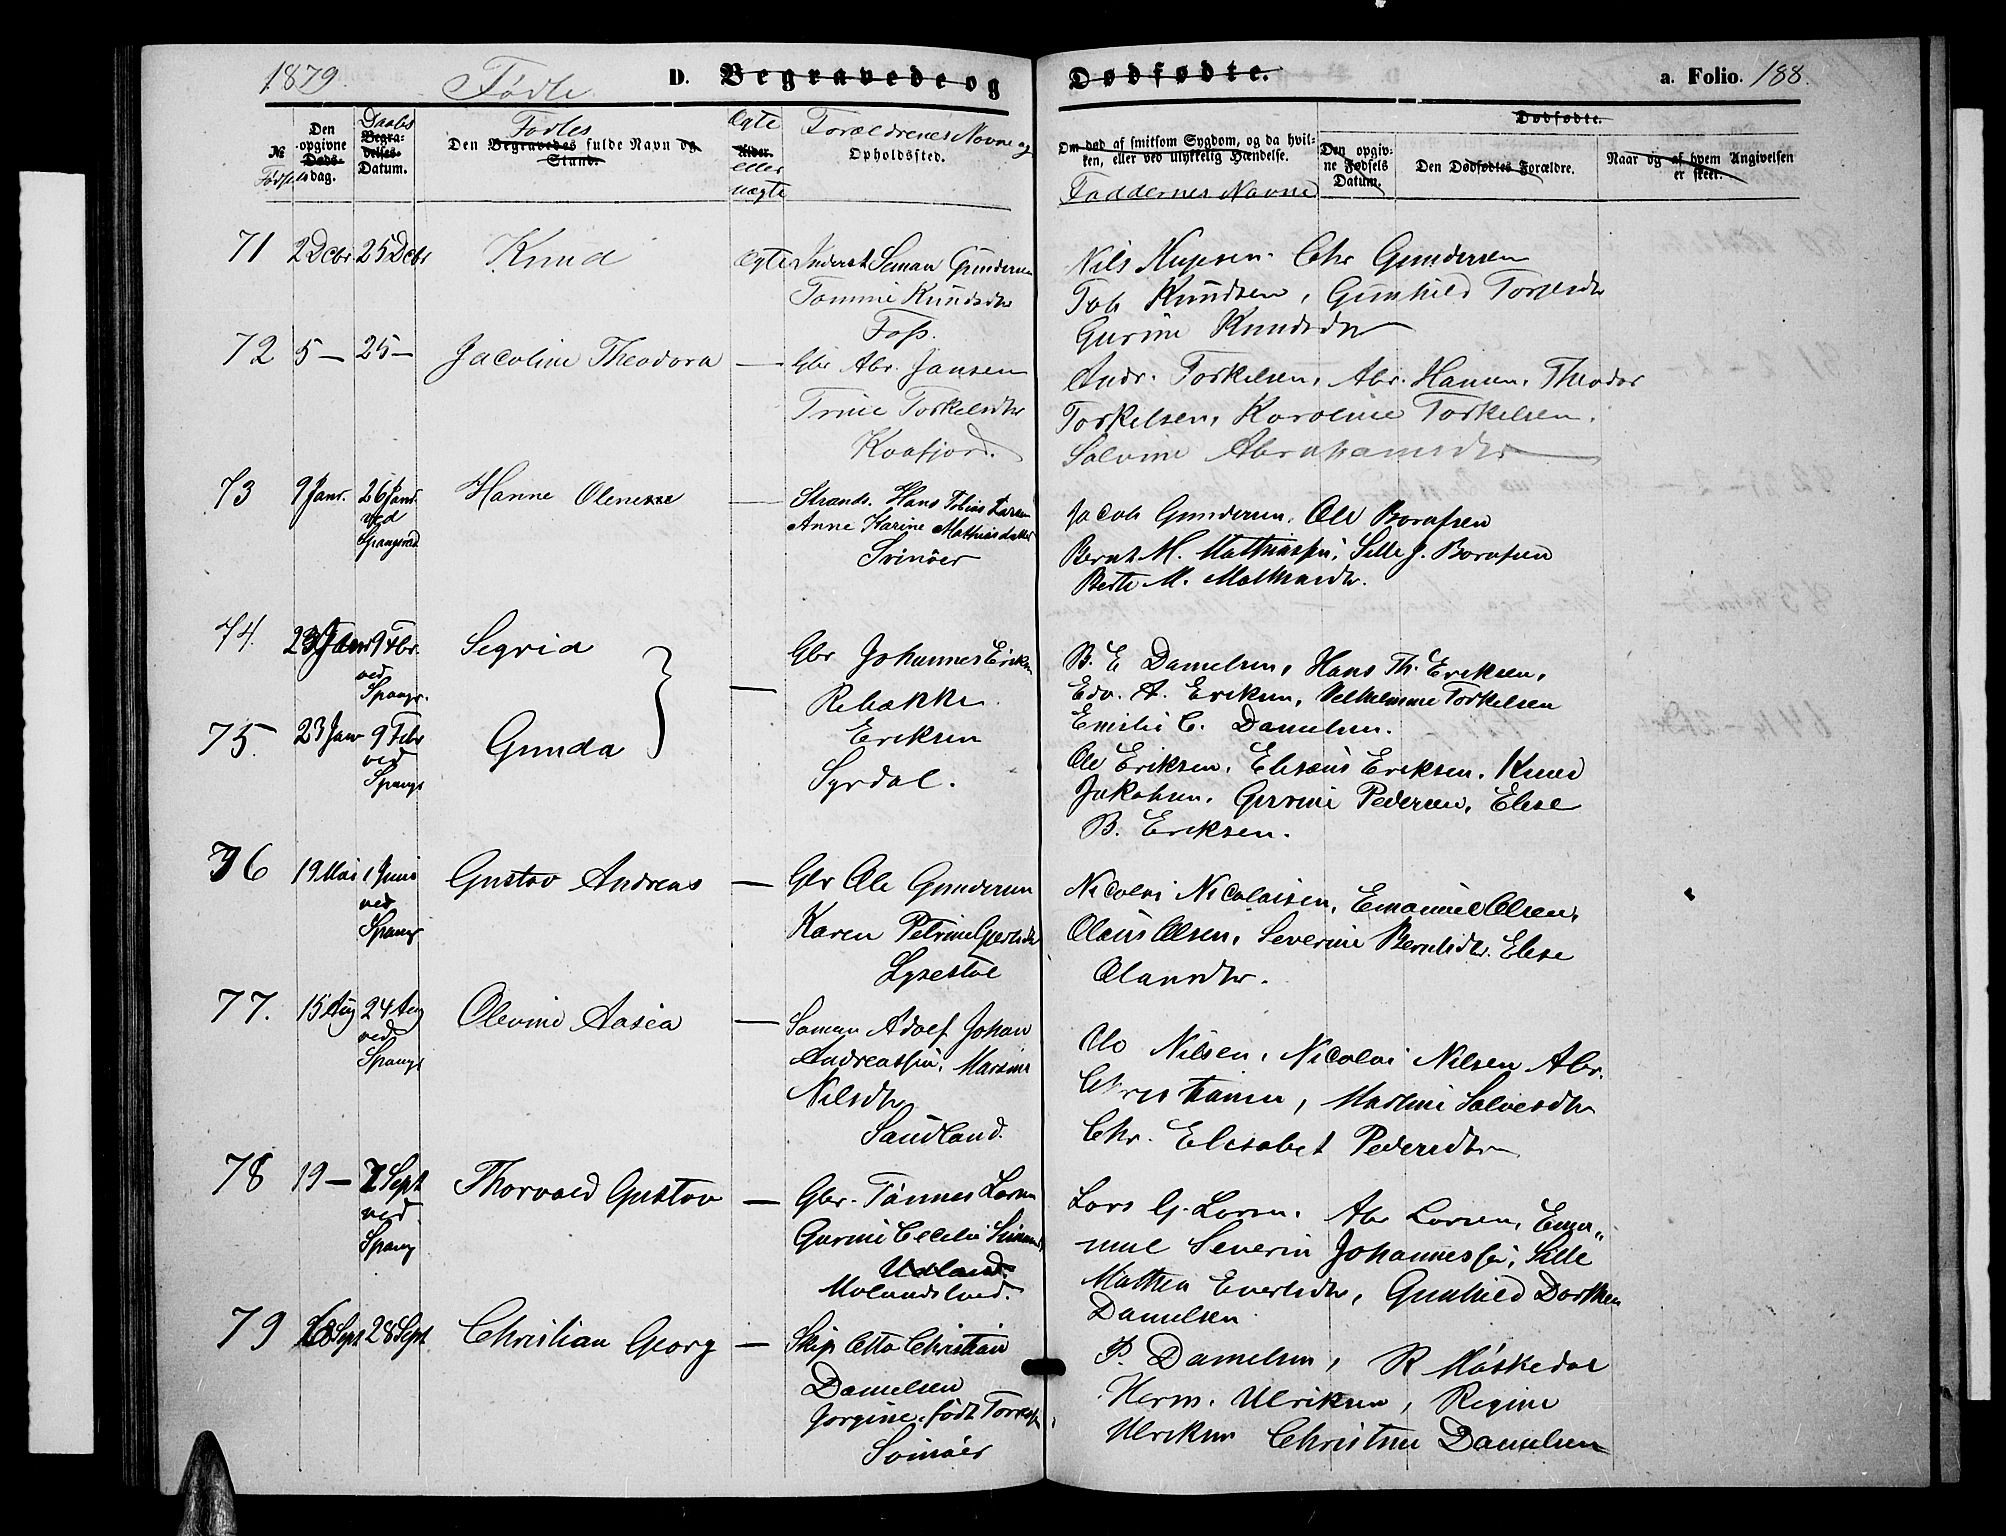 1879. Fødte D. Begravede og Dødfødte. a. Folio. 188.
№ Den opgivne Døds- Fødsels dag. Daabs Begravelses- Datum. Den Fødtes Begravedes fulde Navn og Stand. Ægte Alder. eller uægte Forældrenes Navne og Opholdssted.
Om død af smitsom Sygdom, og da hvilken, eller ved ulykkelig Hændelse. Faddernes Navne Dødfødte. Den opgivne Fødsels Datum. Den Dødfødtes Forældre. Naar og af hvem Angivelsen er skeet.
71 2 Decbr 25 Decbr Knud Ægte Inderst Gundersen
Tomine Knudsdtr
Foss.
Nils Chr Gundersen
Tob Knudsen, Gunhild
Gurine Knudsdtr
72 5 — 25 — Jacoline Theodora — Gbr Abr. Jansen
Trine Torkelsdtr
Kvafjord.
Andr. Torkelsen, Abr. Hansen, Theodor
Torkelsen, Karoline Torkelsen.
Salvine Abrahamsdtr
73 9 Janr. 26 Janr. ved Spangreid Hanne Olenesse — Strands. Hans Tobias Larsen
Anne Karine Mathiasdatter
Svinöer
Jacob Gundersen, Ole
Bernt M. Mathiassen, Sille J.
Berte M. Mathiasdtr.
74. 23 Janr 9 Fbr. ved Spangr. Segrid } Gbr Johannes Eriksen
Rebække
B. E Danielsen, Hans Th. Eriksen,
Edv. A. Eriksen, Velhelmine Torkelsen
Emilie C. Danielsen.
75. 23 Janr 9 Febr ved Spangr Gunda — Eriksen
Syrdal.
Ole Eriksen, Elisæus Eriksen, Knud
Jakobsen, Gurine Pedersen, Elise
B. Eriksen.
76 19 Mai 1 Juni ved Spangr Gustav Andreas — Gbr Ole Gundersen
Karen Petrine
Lyestøl
Nicolai Nicolaisen, Emanuel Olsen,
Olaus Olsen, Severine Berntsdtr. Elise
Olausdtr.
77. 15 Aug 24 Aug ved Spangr Olevine Aasea — Adolf Johan
Andreassen, Marsine
Nilsdtr
Saudland.
Nilsen, Nicolai Nilsen Abr.
Christiansen, Martine Salvesdtr
Chr. Elisabet Pedersdtr
78 19 — 7 Sept ved Spangr Thorvald Gustav — Gbr. Tönnes Larsen
Gurine Cecilie
Udland.
Lars G. Larsen, Abr Larsen, Ema„
nuel Severin Johannessen, Sille
Mathea Evertsdtr, Gunhild Dorthea
Danielsen
79 18 Sept 28 Sept Christian Georg — Skip Otto Christian
Danielsen
Jorgine, født
Svinöer
P. Danielsen, R Möskedal
Herm. Ulriksen, Regine
Ulriksen Christine Danielsen